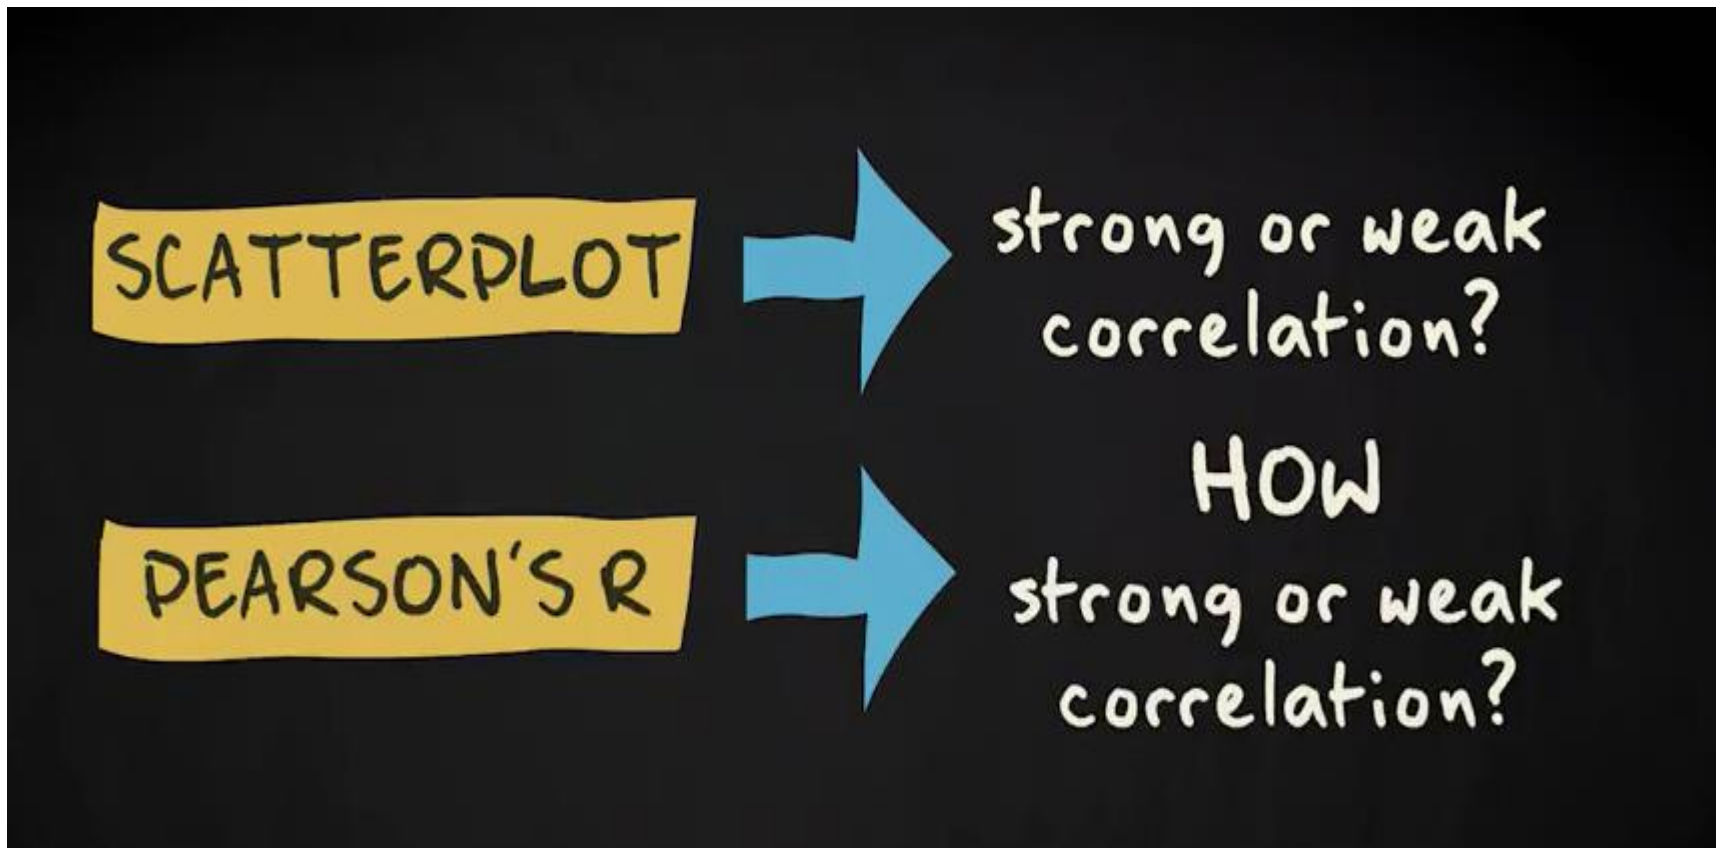 SCATTERPLOT
strong or weak
correlation?
HOW
PEARSON'S R
strong or weak
correlation?